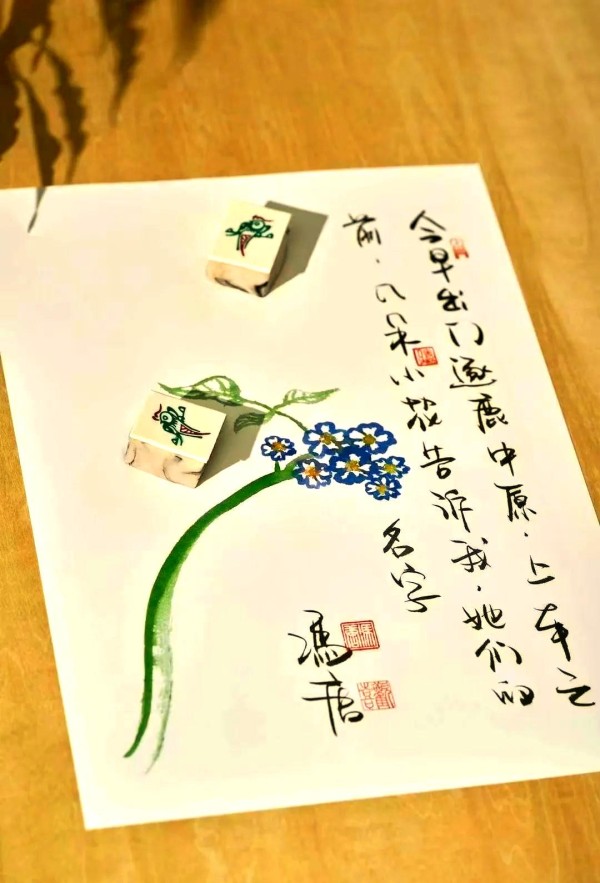 今早出门逐鹿中原，上车之
前，几朵小花告诉我，她们的
名字
馮唐